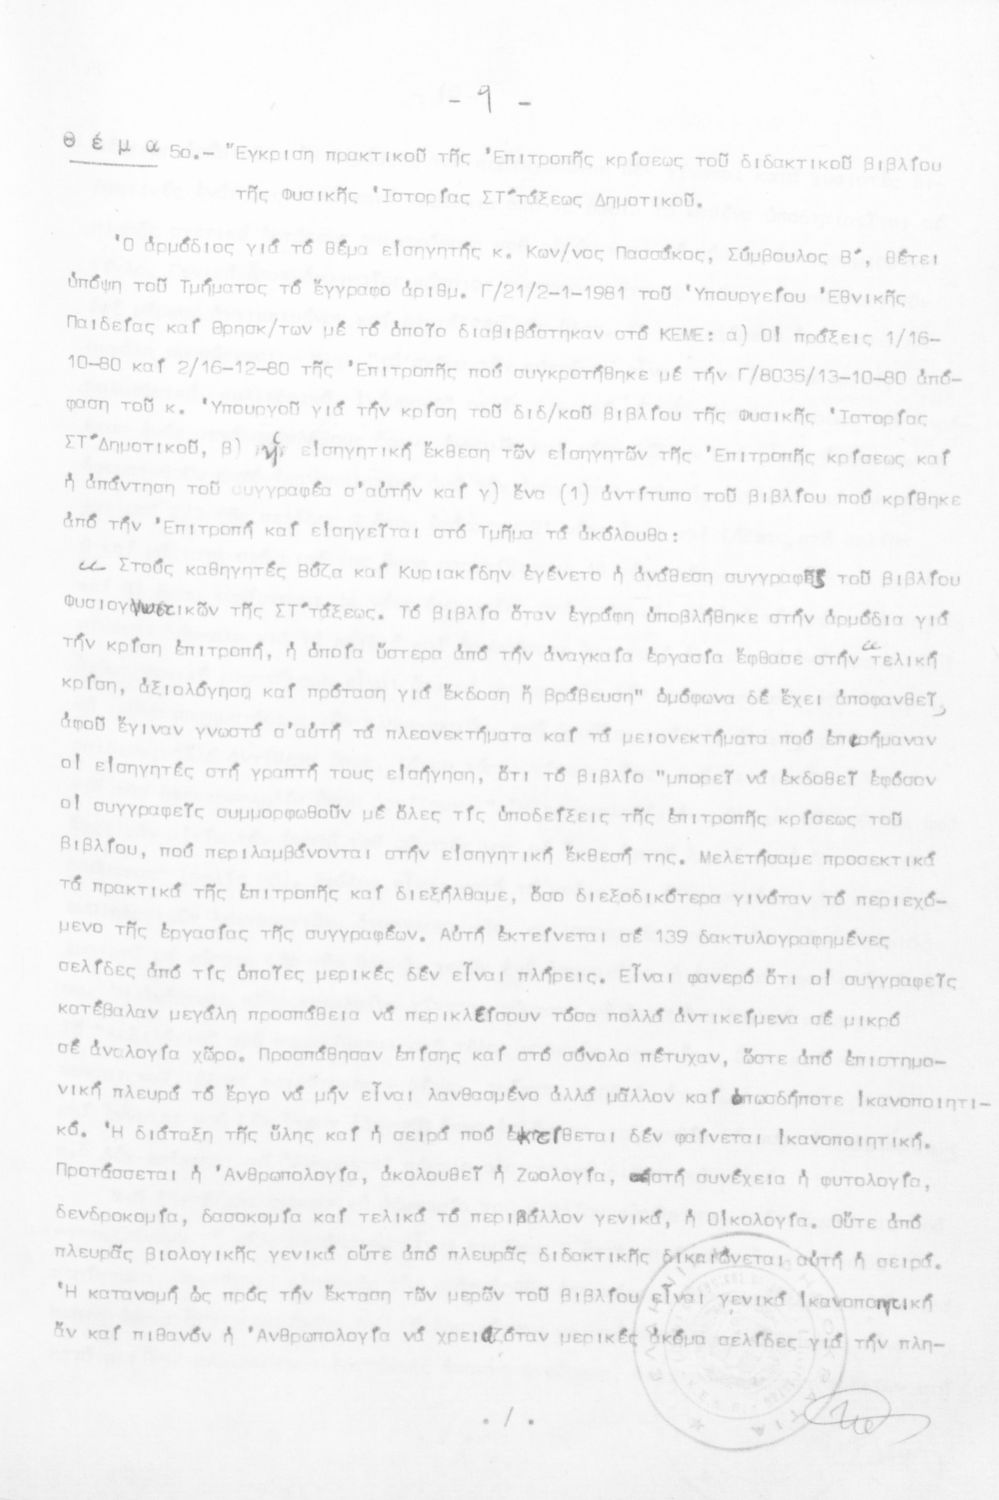 - 9 -
Θ έ μ α 5ο.- Ἔγκριση πρακτικοῦ τῆς Ἐπιτροπῆς κρίσεως τοῦ διδακτικοῦ βιβλίου
τῆς Φυσικῆς Ἱστορίας ΣΤ΄τάξεως Δημοτικοῦ.
Ὁ ἁρμόδιος γιά τό θέμα εἰσηγητής κ. Κων/νος Πασσάκος, Σύμβουλος Β΄, θέτει
ὑπόψη τοῦ Τμήματος τό ἔγγραφο ἀριθμ. Γ/21/2-1-1981 τοῦ Ὑπουργείου Ἐθνικῆς
Παιδείας καί Θρησκ/των μέ τό ὁποῖο διαβιβάστηκαν στό ΚΕΜΕ: α) Οἱ πράξεις 1/16-
10-80 καί 2/16-12-80 τῆς Ἐπιτροπῆς πού συγκροτήθηκε μέ τήν Γ/8035/13-10-80 ἀπό-
φαση τοῦ κ. Ὑπουργοῦ γιά τήν κρίση τοῦ διδ/κοῦ βιβλίου τῆς Φυσικῆς Ἱστορίας
ΣΤ΄Δημοτικοῦ, β) ἡ εἰσηγητική ἔκθεση τῶν εἰσηγητῶν τῆς Ἐπιτροπῆς κρίσεως καί
ἡ ἀπάντηση τοῦ συγγραφέα σ'αὐτήν καί γ) ἕνα (1) ἀντίτυπο τοῦ βιβλίου πού κρίθηκε
ἀπό τήν Ἐπιτροπή καί εἰσηγεῖται στό Τμῆμα τά ἀκόλουθα:
" Στούς καθηγητές Βόζα καί Κυριακίδην ἐγένετο ἡ ἀνάθεση συγγραφῆς τοῦ βιβλίου
Φυσιογνωστικῶν τῆς ΣΤ΄τάξεως. Τό βιβλίο ὅταν ἐγράφη ὑποβλήθηκε στήν ἁρμόδια γιά
τήν κρίση ἐπιτροπή, ἡ ὁποία ὕστερα ἀπό τήν ἀναγκαία ἐργασία ἔφθασε στήν "τελική
κρίση, ἀξιολόγηση καί πρόταση γιά ἔκδοση ἤ βράβευση" ὁμόφωνα δέ ἔχει ἀποφανθεῖ,
ἀφοῦ ἔγιναν γνωστά σ'αὐτή τά πλεονεκτήματα καί τά μειονεκτήματα πού ἐπεσήμαναν
οἱ εἰσηγητές στή γραπτή τους εἰσήγηση, ὅτι τό βιβλίο "μπορεῖ νά ἐκδοθεῖ ἐφόσον
οἱ συγγραφεῖς συμμορφωθοῦν μέ ὅλες τίς ὑποδείξεις τῆς ἐπιτροπῆς κρίσεως τοῦ
βιβλίου, πού περιλαμβάνονται στήν εἰσηγητική ἔκθεσή της. Μελετήσαμε προσεκτικά
τά πρακτικά τῆς ἐπιτροπῆς καί διεξήλθαμε, ὅσο διεξοδικότερα γινόταν τό περιεχό-
μενο τῆς ἐργασίας τῆς συγγραφέων. Αὐτή ἐκτείνεται σέ 139 δακτυλογραφημένες
σελίδες ἀπό τίς ὁποῖες μερικές δέν εἶναι πλήρεις. Εἶναι φανερό ὅτι οἱ συγγραφεῖς
κατέβαλαν μεγάλη προσπάθεια νά περικλείσουν τόσα πολλά ἀντικείμενα σέ μικρό
σέ ἀναλογία χῶρο. Προσπάθησαν ἐπίσης καί στό σύνολο πέτυχαν, ὥστε ἀπό ἐπιστημο-
νική πλευρά τό ἔργο νά μήν εἶναι λανθασμένο ἀλλά μᾶλλον καί ὁπωσδήποτε ἱκανοποιητι-
κό. Ἡ διάταξη τῆς ὕλης καί ἡ σειρά πού ἐκτίθεται δέν φαίνεται ἱκανοποιητική.
Προτάσσεται ἡ Ἀνθρωπολογία, ἀκολουθεῖ ἡ Ζωολογία, στή συνέχεια ἡ φυτολογία,
δενδροκομία, δασοκομία καί τελικά τό περιβάλλον γενικά, ἡ Οἰκολογία. Οὔτε ἀπό
πλευρᾶς βιολογικῆς γενικά οὔτε ἀπό πλευρᾶς διδακτικῆς δικαιώνεται αὐτή ἡ σειρά.
Ἡ κατανομή ὡς πρός τήν ἔκταση τῶν μερῶν τοῦ βιβλίου εἶναι γενικά ἱκανοποιητική
ἄν καί πιθανόν ἡ Ἀνθρωπολογία νά χρειαζόταν μερικές ἀκόμα σελίδες γιά τήν πλη-
. / .